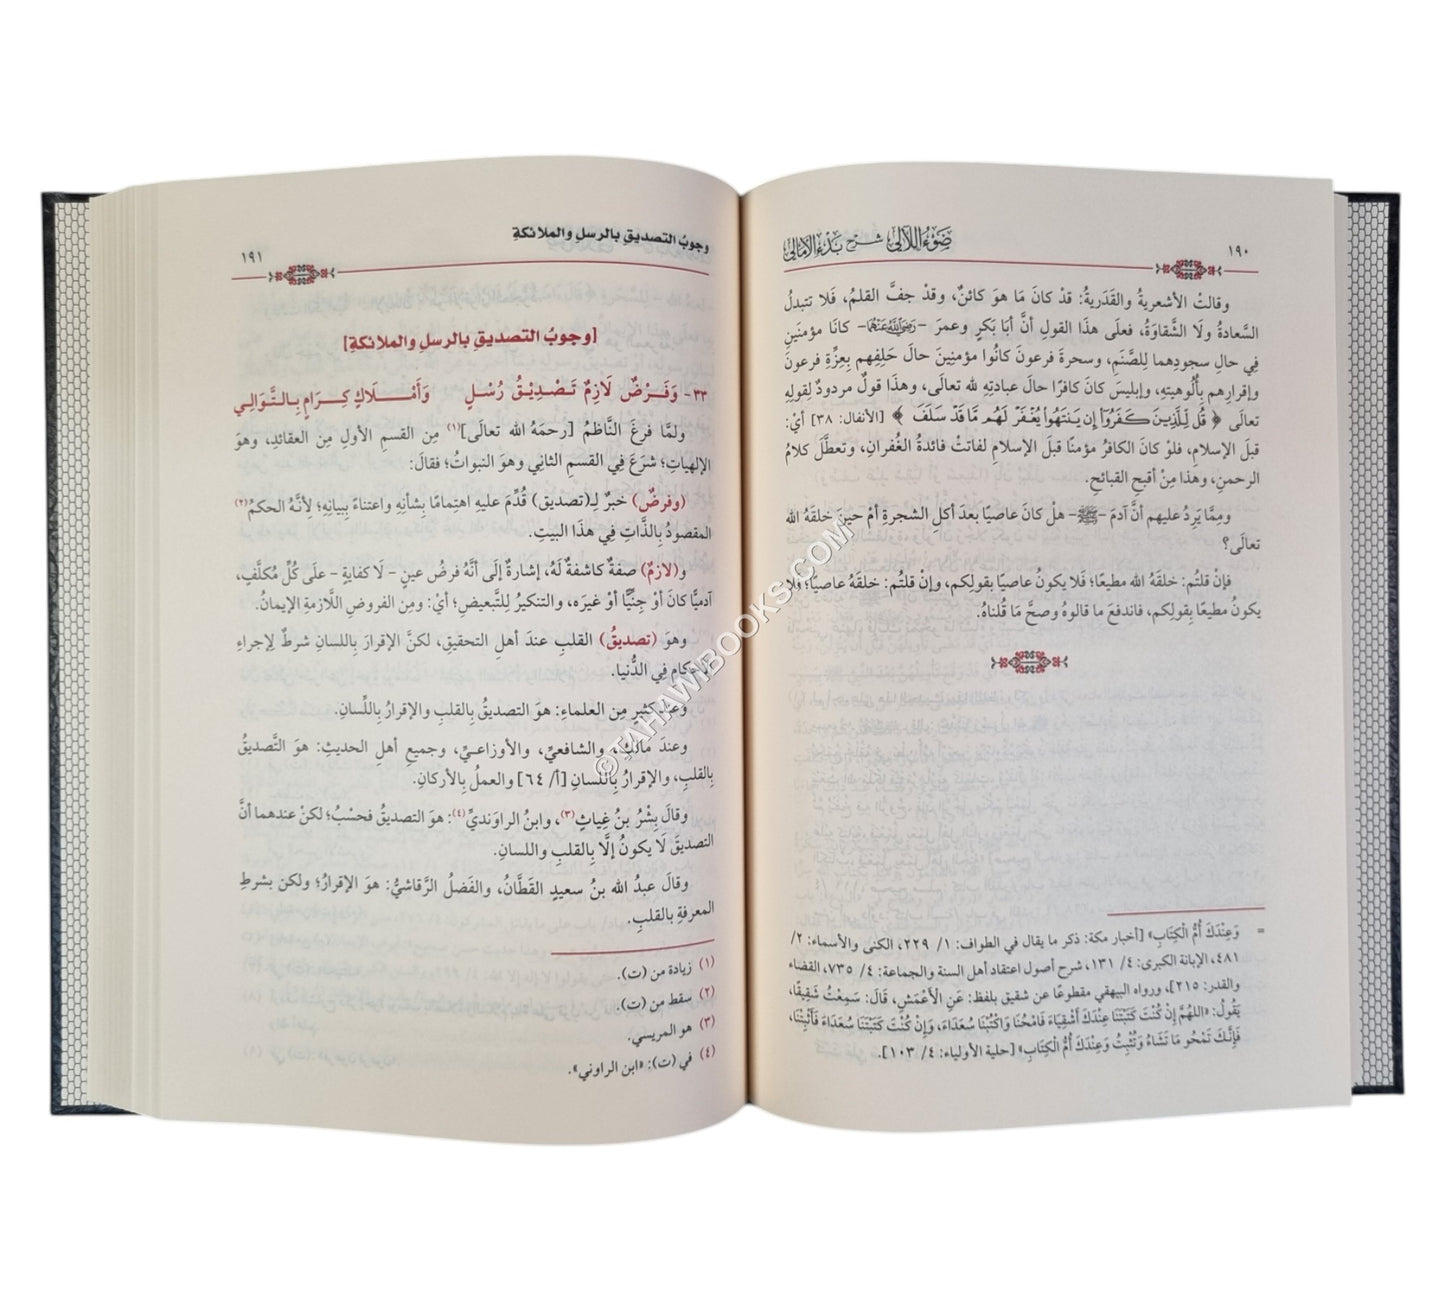 ١٩٠
ضوء اللآلي شرح بدء الأمالي
وقالتْ الأشعريةُ والقَدَريةُ: قدْ كانَ مَا هوَ كائنٌ، وقدْ جفَّ القلمُ، فَلا تتبدلُ
السعادةُ ولَا الشَّقاوَةُ، فعلَى هذَا القولِ أنَّ أبَا بَكرٍ وعمرَ –رَضِيَ اللَّهُ عَنْهُمَا– كانَا مؤمنَينِ
فِي حالِ سجودِهما لِلصَّنَمِ، وسحرةَ فرعونَ كانُوا مؤمنينَ حالَ حَلِفِهم بِعِزَّةِ فرعونَ
وإقرارِهم بأُلُوهيتِهِ، وإبليسَ كانَ كافرًا حالَ عبادتِهِ لله تعالَى، وهذَا قولٌ مردودٌ لِقولِهِ
تعالَى ﴿ قُل لِّلَّذِينَ كَفَرُوٓاْ إِن يَنتَهُواْ يُغْفَرْ لَهُم مَّا قَدْ سَلَفَ ﴾ [الأنفال: ٣٨] أيْ:
قبلَ الإسلامِ، فلوْ كانَ الكافرُ مؤمنًا قبلَ الإسلامِ لفاتتْ فائدةُ الغُفرانِ، وتعطَّلَ كلامُ
الرحمنِ، وهذا مِنْ أقبحِ القبائحِ.
ومِمَّا يَرِدُ عليهم أنَّ آدمَ –ﷺ– هلْ كانَ عاصيًا بعدَ أكلِ الشجرةِ أمْ حينَ خلقَهُ الله
تعالَى؟
فإنْ قلتُم: خلقَهُ الله مطيعًا؛ فَلا يكونُ عاصيًا بقولِكم، وإنْ قلتُم: خلقَهُ عاصيًا؛ فَلا
يكونُ مطيعًا بِقولِكم، فاندفعَ ما قالوهُ وصحَّ مَا قُلناهُ.
= وَعِنْدَكَ أُمُّ الْكِتَابِ» [أخبار مكة: ذكر ما يقال في الطواف: ١/ ٢٢٩، الكنى والأسماء: ٢/
٤٨١، الإبانة الكبرى: ٤/ ١٣١، شرح أصول اعتقاد أهل السنة والجماعة: ٤/ ٧٣٥، القضاء
والقدر: ٢١٥]، ورواه البيهقي مقطوعًا عن شقيق بلفظ: عَنِ الْأَعْمَشِ، قَالَ: سَمِعْتُ شَقِيقًا،
يَقُولُ: «اللهُمَّ إِنْ كُنْتَ كَتَبْتَنَا عِنْدَكَ أَشْقِيَاءَ فَامْحُنَا وَاكْتُبْنَا سُعَدَاءَ، وَإِنْ كُنْتَ كَتَبْتَنَا سُعَدَاءَ فَأَثْبِتْنَا،
فَإِنَّكَ تَمْحُو مَا تَشَاءُ وَتُثْبِتُ وَعِنْدَكَ أُمُّ الْكِتَابِ» [حلية الأولياء: ٤/ ١٠٣].
وجوبُ التصديقِ بالرسلِ والملائكةِ
١٩١
[وجوبُ التصديقِ بالرسلِ والملائكةِ]
٣٣- وَفَرْضٌ لَازِمٌ تَصْدِيْقُ رُسْلٍ وَأَمْلَاكٍ كِرَامٍ بِالتَّوَالِي
ولمَّا فرغَ النَّاظمُ [رحمَهُ الله تعالَى](١) مِن القسمِ الأولِ مِن العقائدِ، وهوَ
الإلهياتِ؛ شرَعَ فِي القسمِ الثانِي وهوَ النبواتُ؛ فقالَ:
(وفرضٌ) خبرٌ لِـ(تصديق) قُدِّمَ عليهِ اهتِمامًا بشأنِهِ واعتناءً بِبيانِهِ؛ لِأنَّهُ الحكمُ(٢)
المقصودُ بِالذَّاتِ فِي هذَا البيتِ.
و(لازمٌ) صفةٌ كاشفةٌ لَهُ، إشارةٌ إلَى أنَّهُ فرضُ عينٍ – لَا كفايةٍ – علَى كُلِّ مُكلَّفٍ،
آدميًّا كانَ أوْ جِنِّيًّا أوْ غيرَه، والتنكيرُ لِلتَّبعيضِ؛ أيْ: ومِن الفروضِ اللَّازمةِ الإيمانُ.
وهوَ (تصديقُ) القلبِ عندَ أهلِ التحقيقِ، لكنَّ الإقرارَ بِاللسانِ شرطٌ لِإجراءِ
الأحكامِ فِي الدُّنيا.
وعندَ كثيرٍ مِن العلماءِ: هوَ التصديقُ بِالقلبِ والإقرارُ بِاللِّسانِ.
وعندَ مالكٍ، والشافعيِّ، والأوزاعيِّ، وجميعِ أهلِ الحديثِ: هوَ التَّصديقُ
بِالقلبِ، والإقرارُ بِاللسانِ [أ/ ٦٤] والعملُ بِالأركانِ.
وقالَ بِشْرُ بنُ غِياثٍ(٣)، وابنُ الراوَنديِّ(٤): هوَ التصديقُ فحسْبُ؛ لكنْ عندهما أنَّ
التصديقَ لَا يكونُ إلَّا بِالقلبِ واللسانِ.
وقالَ عبدُ الله بنُ سعيدٍ القَطَّانُ، والفَضلُ الرَّقاشيُّ: هوَ الإقرارُ؛ ولكن بشرطِ
المعرفةِ بالقلبِ.
(١) زيادة من (ت).
(٢) سقط من (ت).
(٣) هو المريسي.
(٤) في (ت): «ابن الراوني».
© TAHAWIBOOKS.COM